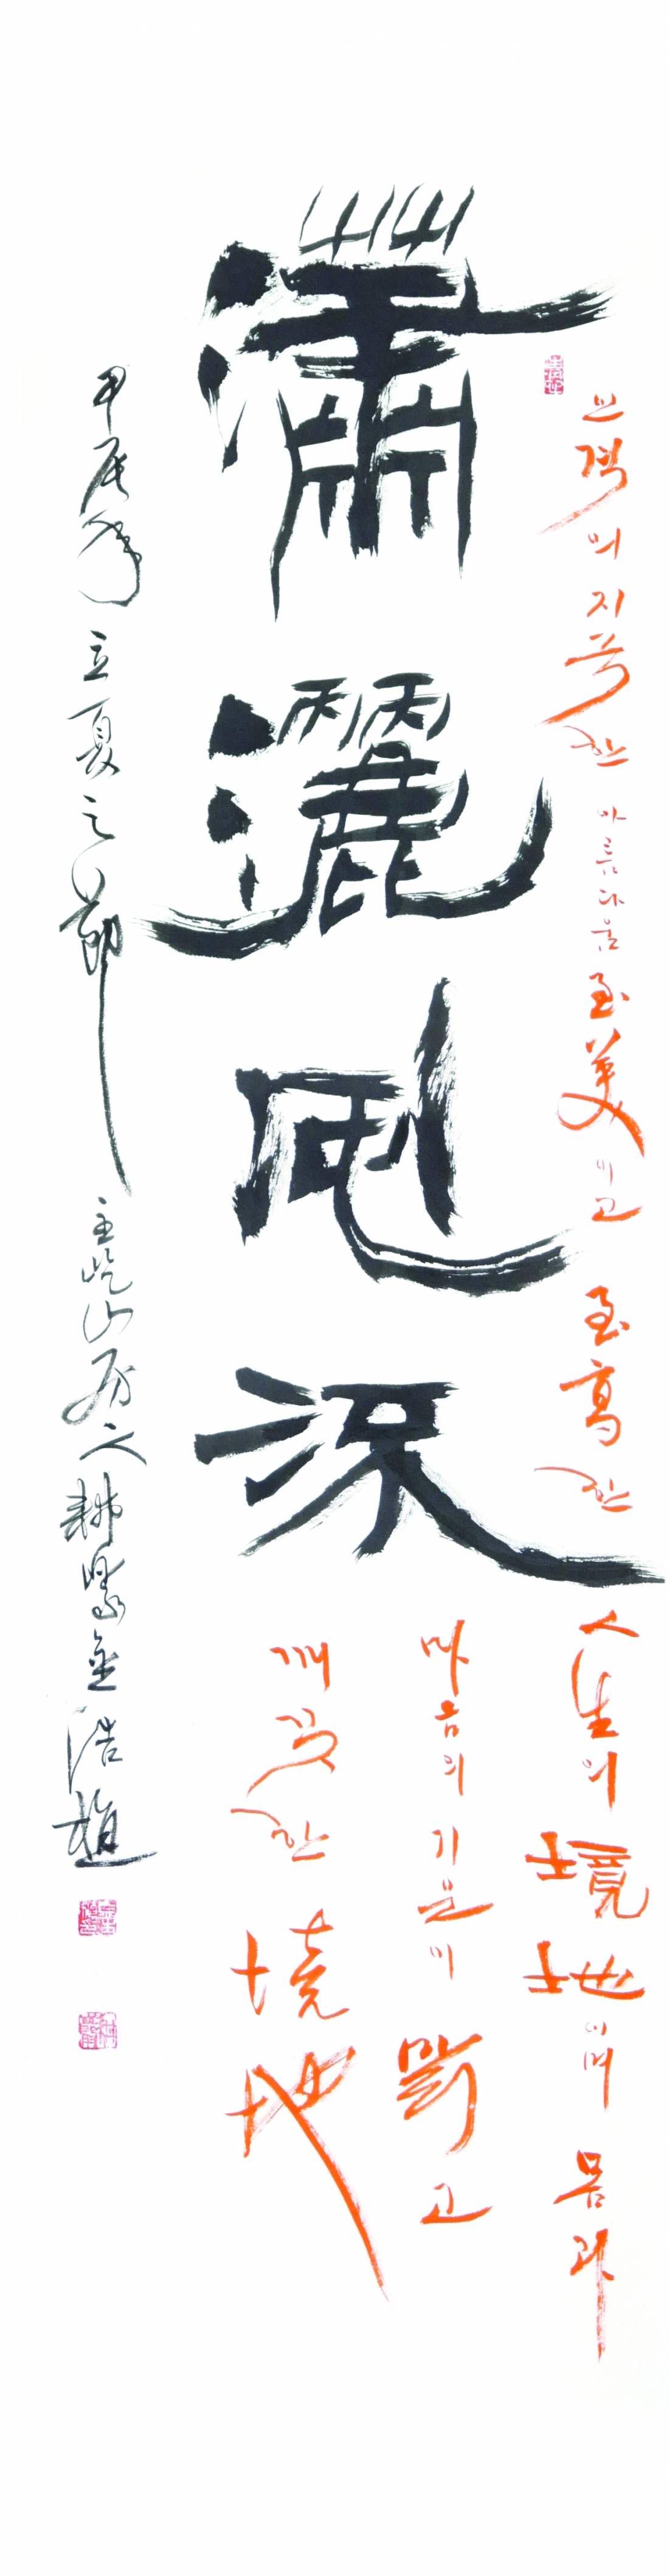 격의 지극한 아름다움 至美이고 至高한 人生의 境地이며 몸과
마음의 기운이 맑고
깨끗한 境地
瀟灑
甲辰年 立夏之節 主屹山房人 耕 金浩植